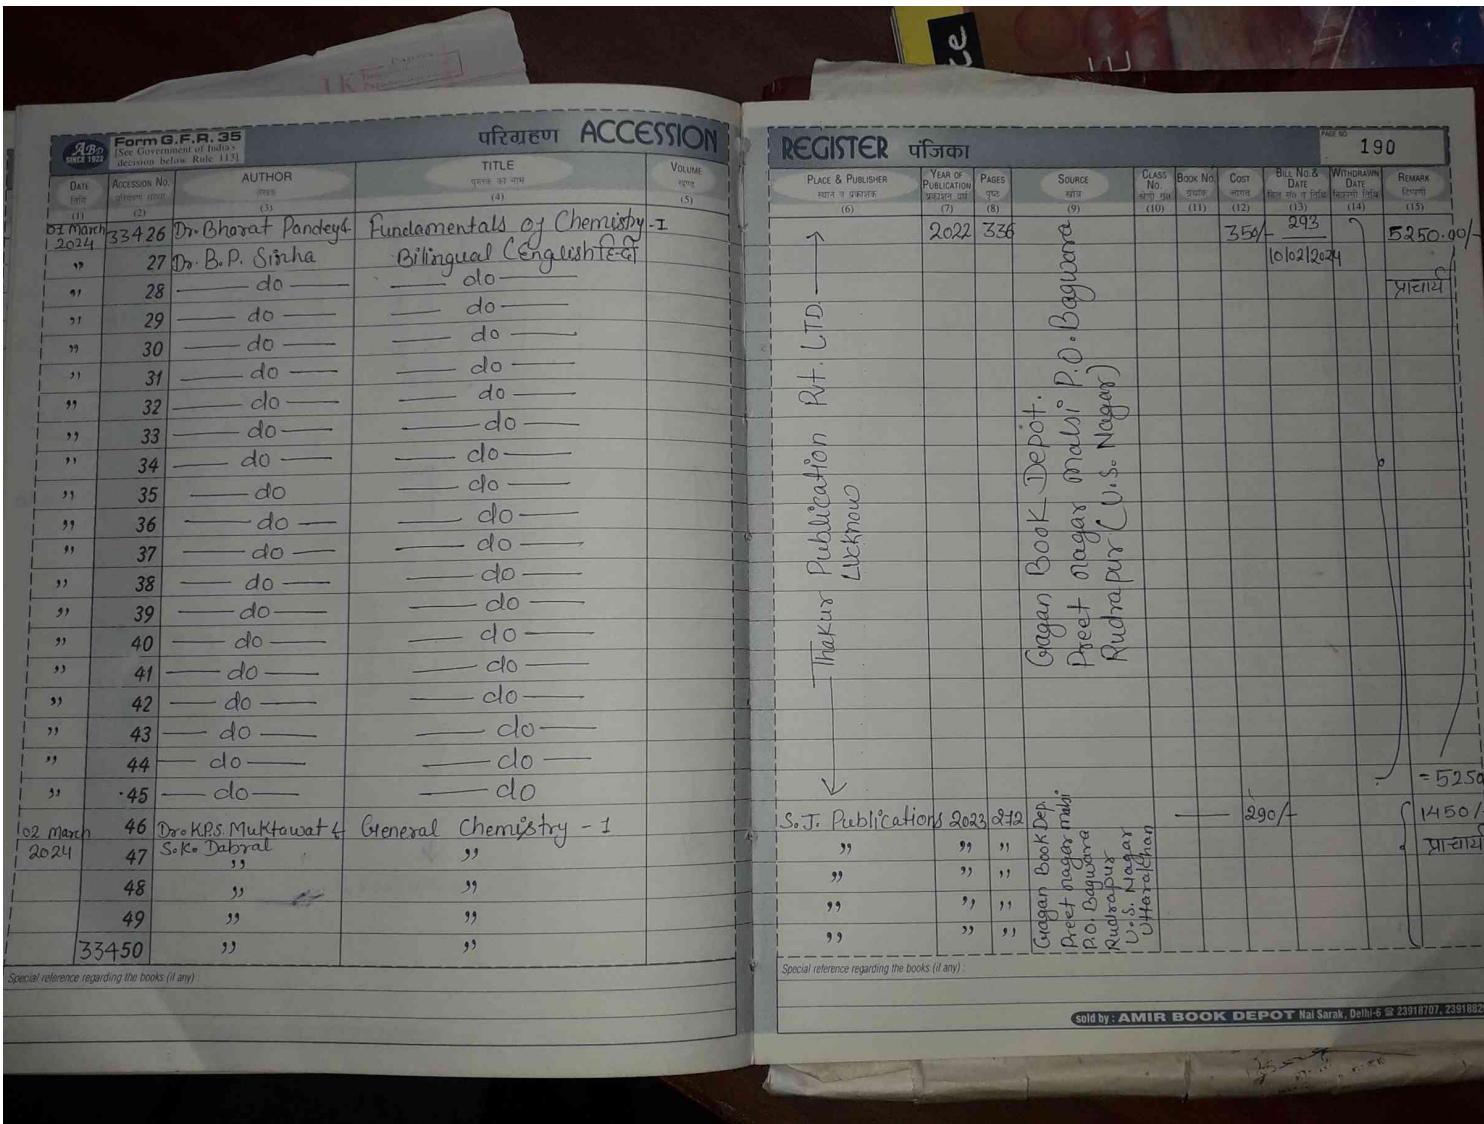 ce
E
ABD
SINCE 1922
Form G.F.R. 35
[See Government of India's
decision below Rule 113]
परिग्रहण ACCESSION
DATE तिथि (1) ACCESSION No. परिग्रहण संख्या (2) AUTHOR लेखक (3) TITLE पुस्तक का नाम (4) VOLUME खण्ड (5)
01 March 2024 33426 Dr. Bharat Pandey & Fundamentals of Chemistry-I
,, 27 Dr. B.P. Sinha Bilingual (English हिन्दी
,, 28 do do
,, 29 do do
,, 30 do do
,, 31 do do
,, 32 do do
,, 33 do do
,, 34 do do
,, 35 do do
,, 36 do do
,, 37 do do
,, 38 do do
,, 39 do do
,, 40 do do
,, 41 do do
,, 42 do do
,, 43 do do
,, 44 do do
,, 45 do do
02 March 46 Dr. K.P.S. Muktawat & General Chemistry - I
2024 47 S.K. Dabral ,, ,,
48 ,, ,,
49 ,, ,,
33450 ,, ,,
Special reference regarding the books (if any) :
REGISTER पंजिका
PAGE NO 190
PLACE & PUBLISHER स्थान व प्रकाशक (6) YEAR OF PUBLICATION प्रकाशन वर्ष (7) PAGES पृष्ठ (8) SOURCE स्रोत (9) CLASS No. (10) BOOK No. (11) COST लागत (12) BILL No. & DATE (13) WITHDRAWN DATE (14) REMARK टिप्पणी (15)
2022 336 350/- 293 5250.00/-
10/02/2024
प्राचार्य
Thakur Publication Pvt. LTD.
Lucknow
Gagan Book Depot.
Preet nagar malsi P.O. Bagwara
Rudrapur (U.S. Nagar)
= 5250
S.J. Publications 2023 272 290/- 1450/-
,, ,, ,, प्राचार्य
,, ,, ,,
,, ,, ,,
,, ,, ,,
Gagan Book Dep.
Preet nagar malsi
P.O. Bagwara
Rudrapur
U.S. Nagar
Uttarakhan
Special reference regarding the books (if any) :
sold by : AMIR BOOK DEPOT Nai Sarak, Delhi-6 ☎ 23918707, 2391882